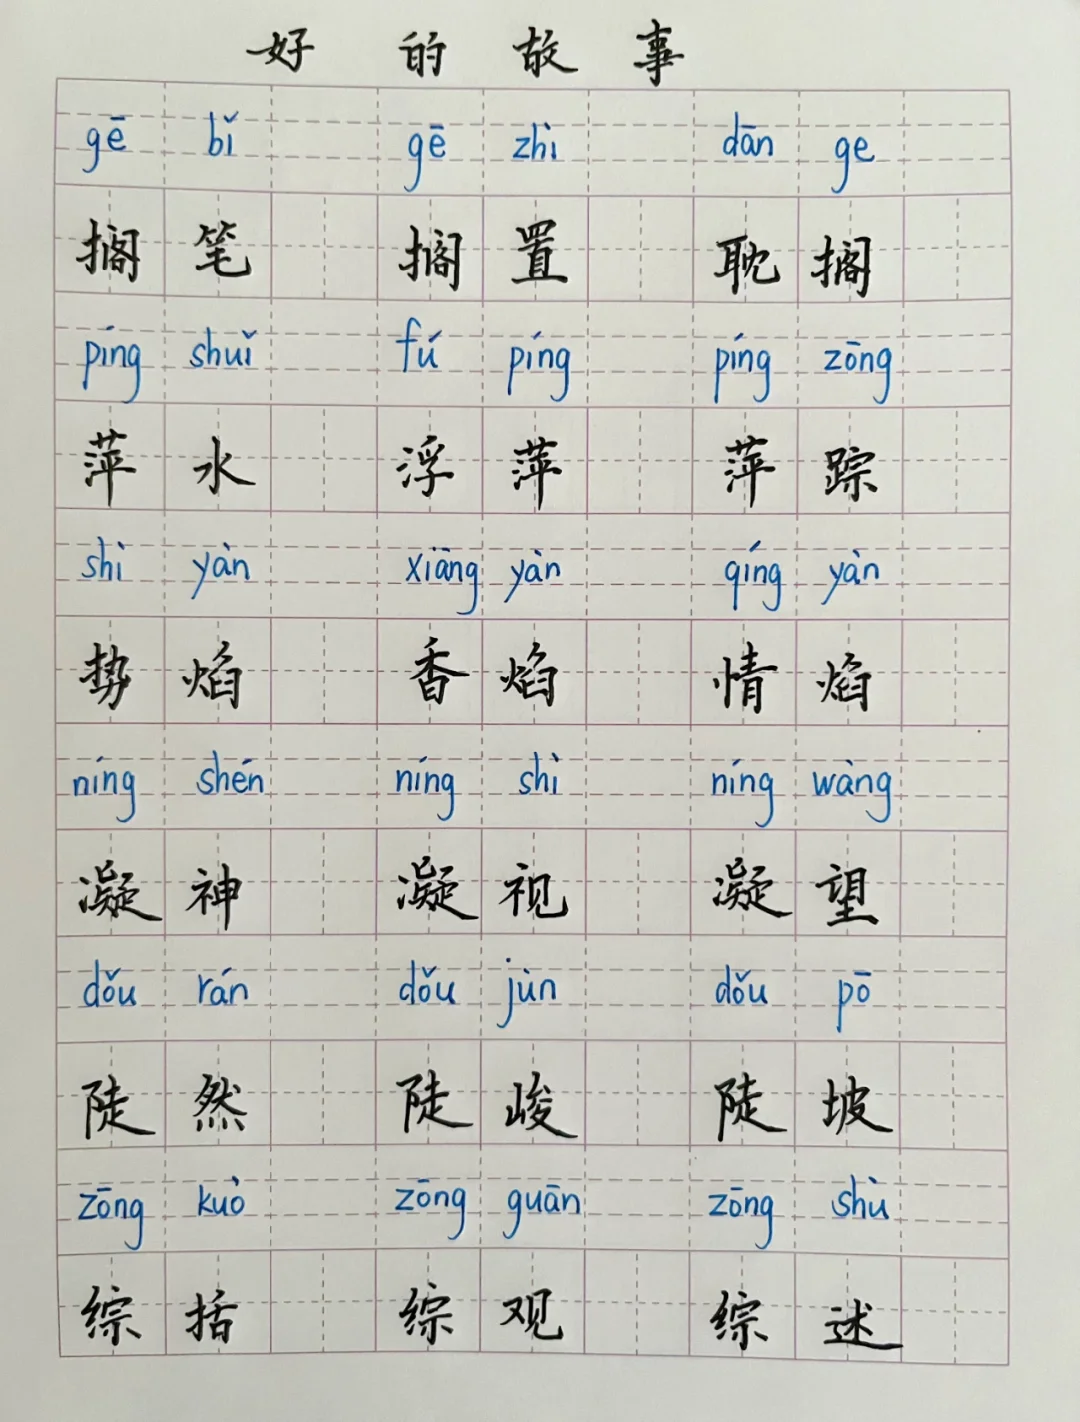 好的故事
gē bǐ gē zhì dān ge
搁笔 搁置 耽搁
píng shuǐ fú píng píng zōng
萍水 浮萍 萍踪
shì yàn xiāng yàn qíng yàn
势焰 香焰 情焰
níng shén níng shì níng wàng
凝神 凝视 凝望
dǒu rán dǒu jùn dǒu pō
陡然 陡峻 陡坡
zōng kuò zōng guān zōng shù
综括 综观 综述